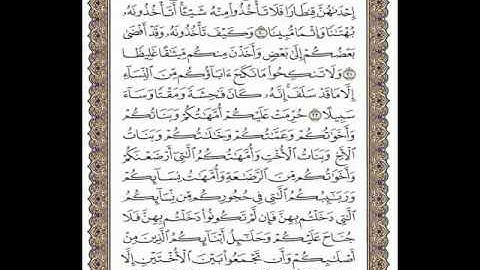 إِحْدَىٰهُنَّ قِنطَارًا فَلَا تَأْخُذُوا۟ مِنْهُ شَيْـًٔا ۚ أَتَأْخُذُونَهُۥ
بُهْتَـٰنًا وَإِثْمًا مُّبِينًا ٢٠ وَكَيْفَ تَأْخُذُونَهُۥ وَقَدْ أَفْضَىٰ
بَعْضُكُمْ إِلَىٰ بَعْضٍ وَأَخَذْنَ مِنكُم مِّيثَـٰقًا غَلِيظًا
٢١ وَلَا تَنكِحُوا۟ مَا نَكَحَ ءَابَآؤُكُم مِّنَ ٱلنِّسَآءِ
إِلَّا مَا قَدْ سَلَفَ ۚ إِنَّهُۥ كَانَ فَـٰحِشَةً وَمَقْتًا وَسَآءَ
سَبِيلًا ٢٢ حُرِّمَتْ عَلَيْكُمْ أُمَّهَـٰتُكُمْ وَبَنَاتُكُمْ
وَأَخَوَٰتُكُمْ وَعَمَّـٰتُكُمْ وَخَـٰلَـٰتُكُمْ وَبَنَاتُ
ٱلْأَخِ وَبَنَاتُ ٱلْأُخْتِ وَأُمَّهَـٰتُكُمُ ٱلَّـٰتِىٓ أَرْضَعْنَكُمْ
وَأَخَوَٰتُكُم مِّنَ ٱلرَّضَـٰعَةِ وَأُمَّهَـٰتُ نِسَآئِكُمْ
وَرَبَـٰٓئِبُكُمُ ٱلَّـٰتِى فِى حُجُورِكُم مِّن نِّسَآئِكُمُ
ٱلَّـٰتِى دَخَلْتُم بِهِنَّ فَإِن لَّمْ تَكُونُوا۟ دَخَلْتُم بِهِنَّ فَلَا
جُنَاحَ عَلَيْكُمْ وَحَلَـٰٓئِلُ أَبْنَآئِكُمُ ٱلَّذِينَ مِنْ
أَصْلَـٰبِكُمْ وَأَن تَجْمَعُوا۟ بَيْنَ ٱلْأُخْتَيْنِ إِلَّا